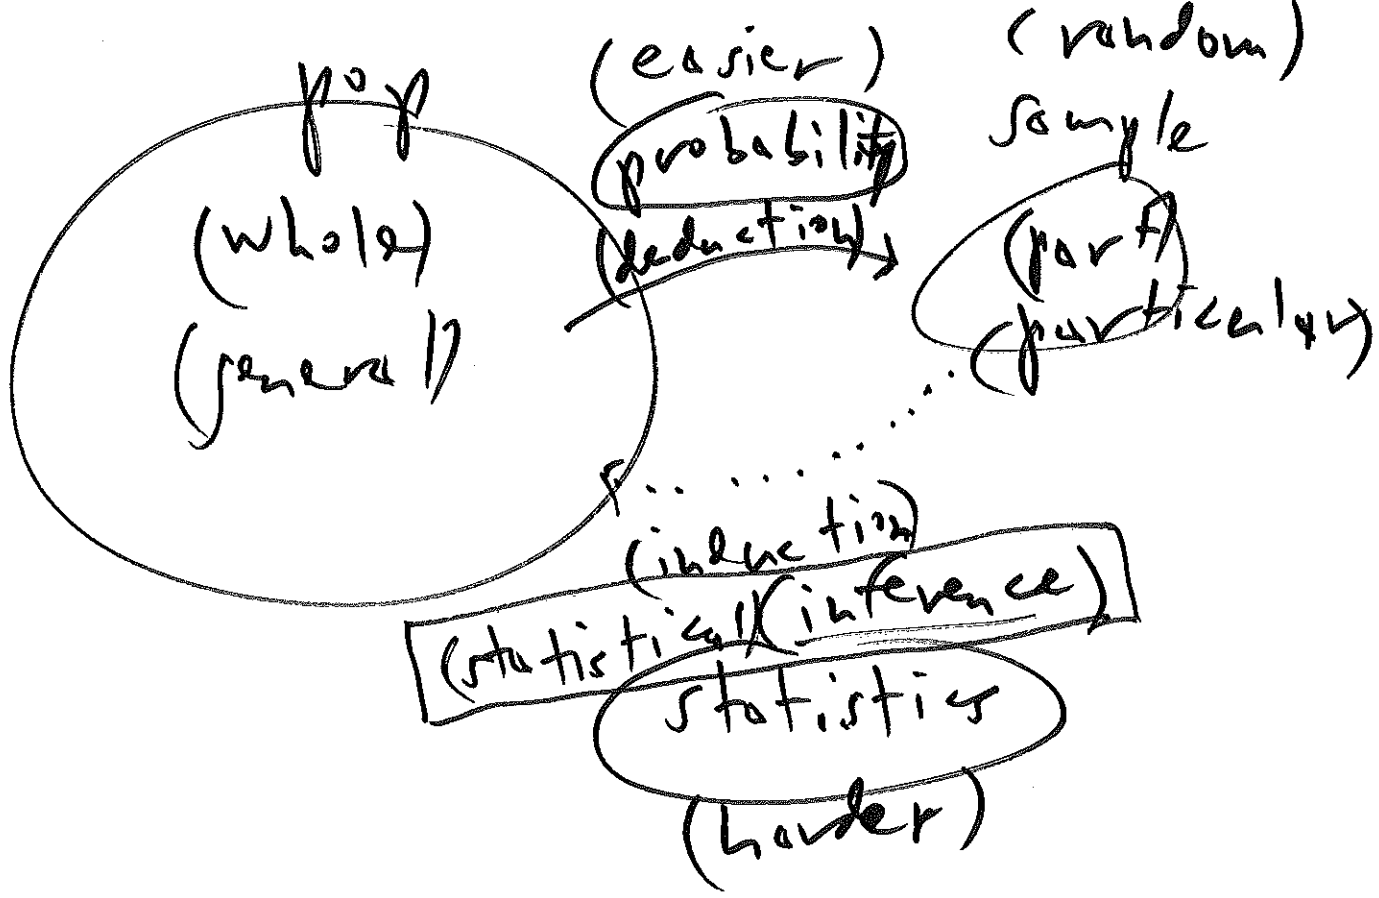 pop
(whole)
(general)
(easier)
probability
(deduction)
(random)
sample
(part)
(particular)
(induction)
(statistical)(inference)
statistics
(harder)